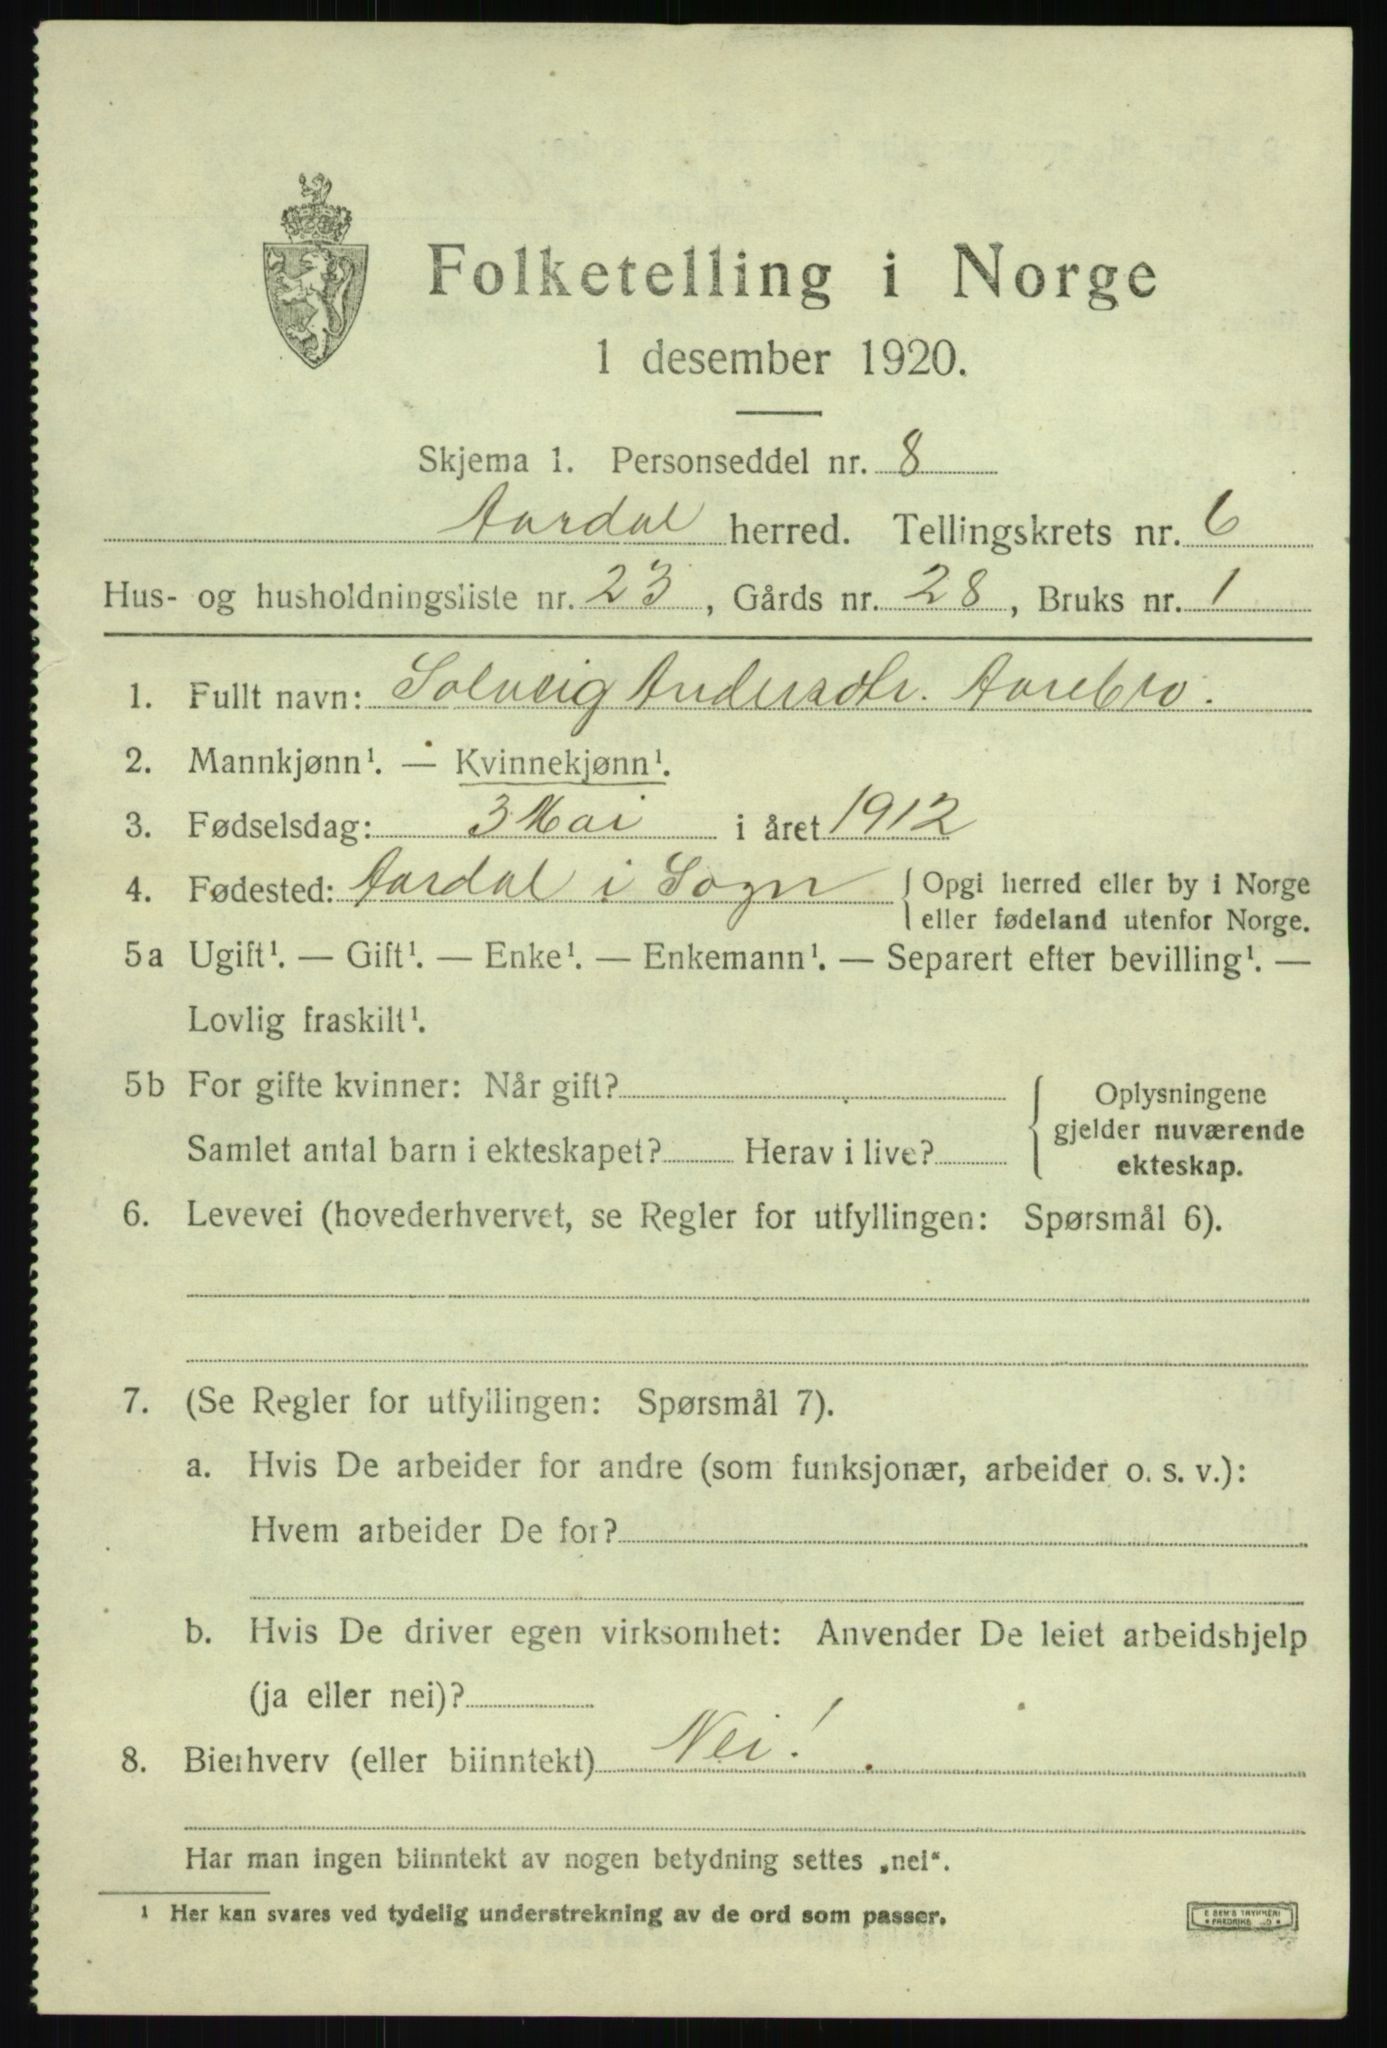 Folketelling i Norge
1 desember 1920.
Skjema 1. Personseddel nr. 8
Aardal herred. Tellingskrets nr. 6
Hus- og husholdningsliste nr. 23, Gårds nr. 28, Bruks nr. 1
1. Fullt navn: Solveig Andersdtr. Aarebro.
2. Mannkjønn¹. — Kvinnekjønn¹.
3. Fødselsdag: 3 Mai i året 1912
4. Fødested: Aardal i Sogn { Opgi herred eller by i Norge
eller fødeland utenfor Norge.
5a Ugift¹. — Gift¹. — Enke¹. — Enkemann¹. — Separert efter bevilling¹. —
Lovlig fraskilt¹.
5b For gifte kvinner: Når gift?
Samlet antal barn i ekteskapet? Herav i live?
Oplysningene
gjelder nuværende
ekteskap.
6. Levevei (hovederhvervet, se Regler for utfyllingen: Spørsmål 6).
7. (Se Regler for utfyllingen: Spørsmål 7).
a. Hvis De arbeider for andre (som funksjonær, arbeider o. s. v.):
Hvem arbeider De for?
b. Hvis De driver egen virksomhet: Anvender De leiet arbeidshjelp
(ja eller nei)?
8. Bierhverv (eller biinntekt) Nei!
Har man ingen biinntekt av nogen betydning settes „nei“.
¹ Her kan svares ved tydelig understrekning av de ord som passer.